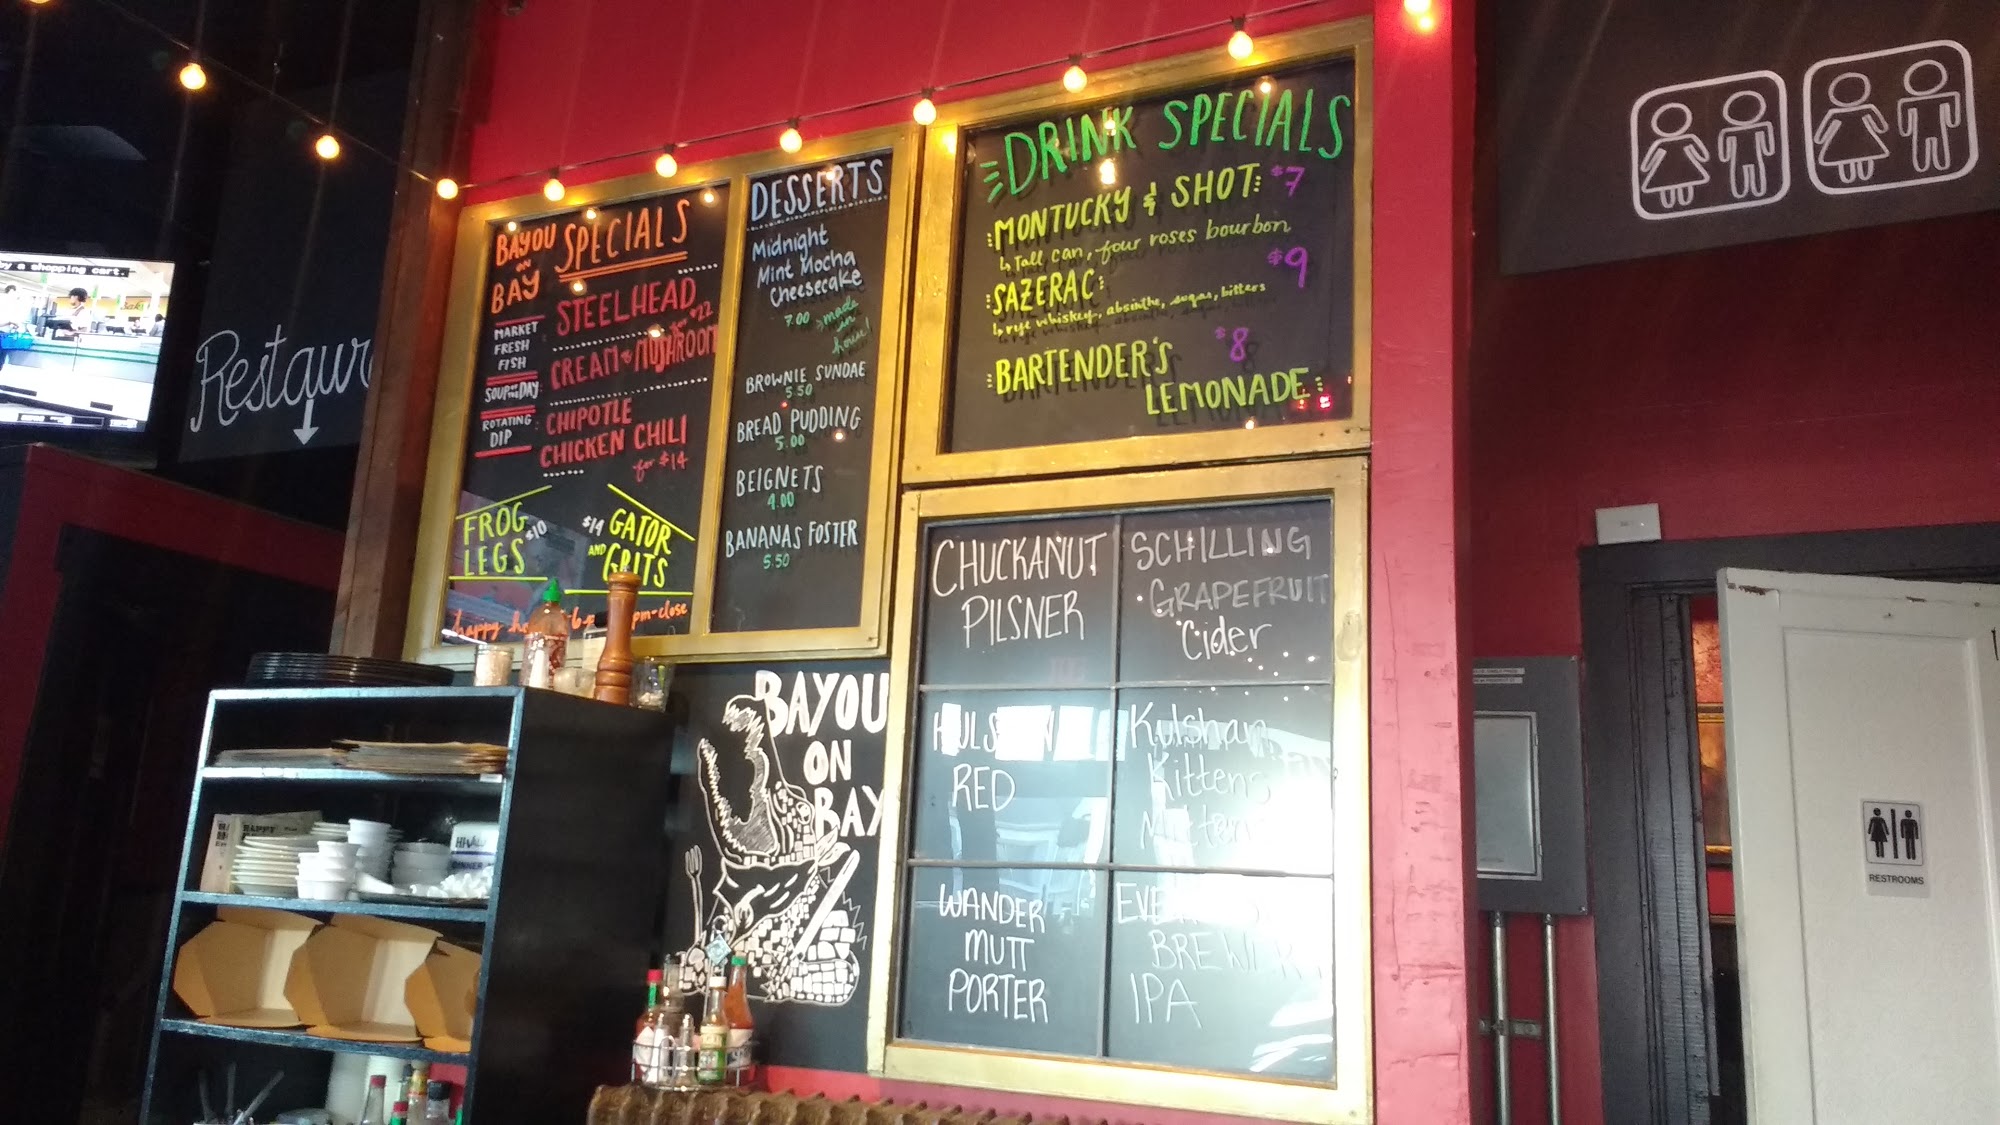 y a shopping cart.
Restaur
BAYOU
ON
BAY
SPECIALS
MARKET
FRESH
FISH
STEELHEAD
for $22
SOUP OF THE DAY:
CREAM OF MUSHROOM
ROTATING
DIP
CHIPOTLE
CHICKEN CHILI
for $14
FROG
LEGS
$10
$14
GATOR
AND
GRITS
happy
pm-close
DESSERTS
Midnight
Mint Mocha
Cheesecake
7.00
made
in
house!
BROWNIE SUNDAE
5.50
BREAD PUDDING
5.00
BEIGNETS
4.00
BANANAS FOSTER
5.50
DRINK SPECIALS
MONTUCKY & SHOT: $7
Tall can, four roses bourbon
SAZERAC: $9
rye whiskey, absinthe, sugar, bitters
BARTENDER'S $8
LEMONADE
CHUCKANUT
PILSNER
SCHILLING
GRAPEFRUIT
Cider
RED
Kulshan
Kittens
Mittens
WANDER
MUTT
PORTER
BREWERY
IPA
BAYOU
ON
BAY
RESTROOMS